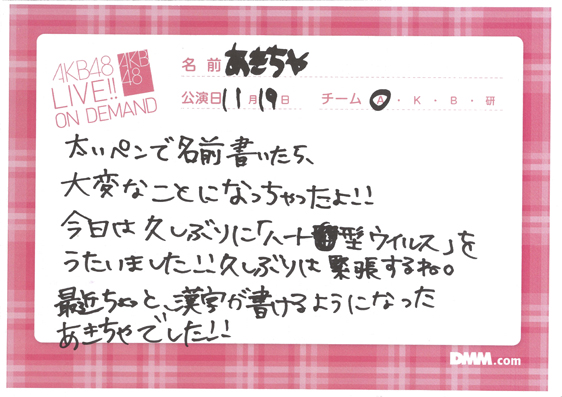 AKB48
LIVE!!
ON DEMAND
AKB
48
名前 あきちゃ
公演日 11月19日 チーム A・K・B・研
太いペンで名前書いたら、
大変なことになっちゃったよ!!
今日は久しぶりに「ハート型ウイルス」を
うたいました!!久しぶりは緊張するね。
最近ちょっと、漢字が書けるようになった
あきちゃでした!!
DMM.com